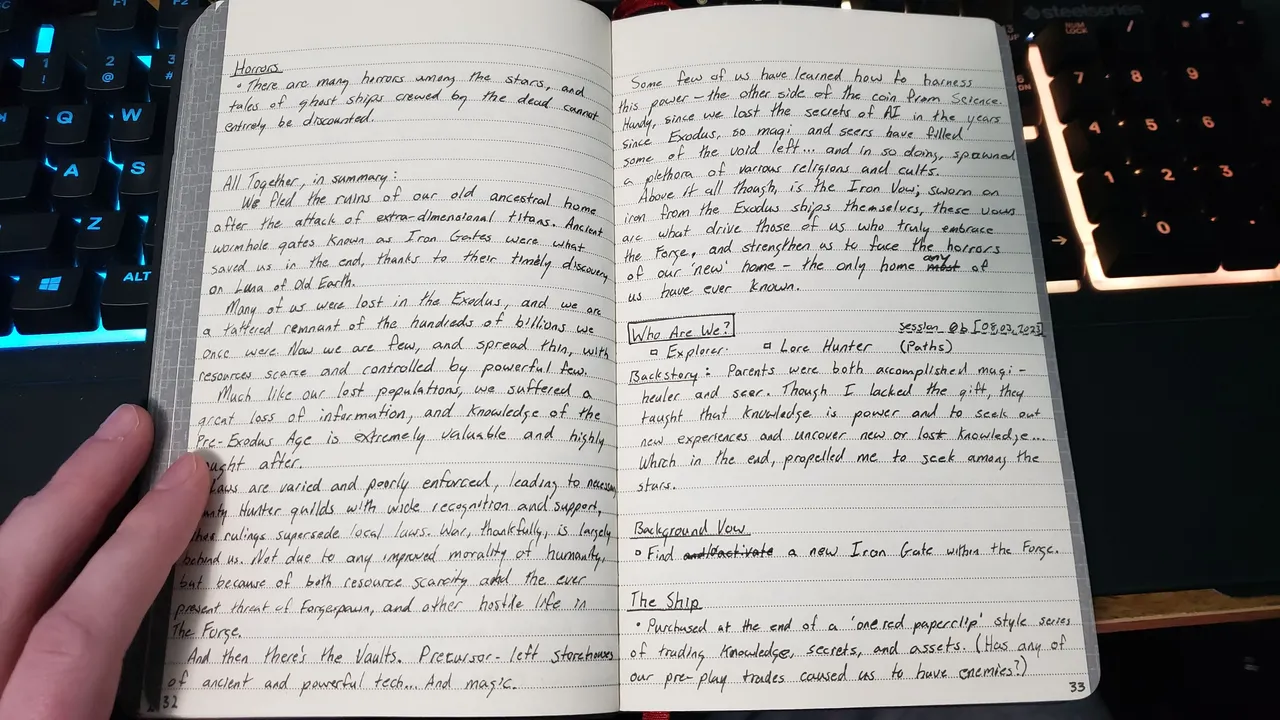 Horrors
• There are many horrors among the stars, and
tales of ghost ships crewed by the dead cannot
entirely be discounted.
All Together, in summary:
We fled the ruins of our old ancestral home
after the attack of extra-dimensional titans. Ancient
wormhole gates known as Iron Gates were what
saved us in the end, thanks to their timely discovery
on Luna of Old Earth.
Many of us were lost in the Exodus, and we are
a tattered remnant of the hundreds of billions we
once were. Now we are few, and spread thin, with
resources scarce and controlled by powerful few.
Much like our lost populations, we suffered a
great loss of information, and knowledge of the
Pre-Exodus Age is extremely valuable and highly
ought after.
Laws are varied and poorly enforced, leading to
unty Hunter guilds with wide recognition and support,
rulings supersede local laws. War, thankfully, is largely
behind us. Not due to any improved morality of humanity,
but because of both resource scarcity and the ever
present threat of Forgespawn, and other hostile life in
The Forge.
And then there's the Vaults. Precursor-left storehouses
of ancient and powerful tech... And magic.
32
Some few of us have learned how to harness
this power - the other side of the coin from Science.
Handy, since we lost the secrets of AI in the years
since Exodus, so magi and seers have filled
some of the void left... and in so doing, spawned
a plethora of various religions and cults.
Above it all though, is the Iron Vow; sworn on
iron from the Exodus ships themselves, these vows
are what drive those of us who truly embrace
the Forge, and strengthen us to face the horrors
of our 'new' home - the only home any most of
us have ever known.
Who Are We?
session 0b [08.03.2023]
▫ Explorer ▫ Lore Hunter (Paths)
Backstory: Parents were both accomplished magi -
healer and seer. Though I lacked the gift, they
taught that knowledge is power and to seek out
new experiences and uncover new or lost knowledge...
Which in the end, propelled me to seek among the
stars.
Background Vow
▫ Find and/activate a new Iron Gate within the Forge.
The Ship
• Purchased at the end of a 'one red paperclip' style series
of trading knowledge, secrets, and assets. (Has any of
our pre-play trades caused us to have enemies?)
33
F1
F2
1
!
2
@
3
#
Q
W
A
S
Z
ALT
steelseries
NUM
LOCK
/
7
8
9
+
4
5
6
1
2
3
0